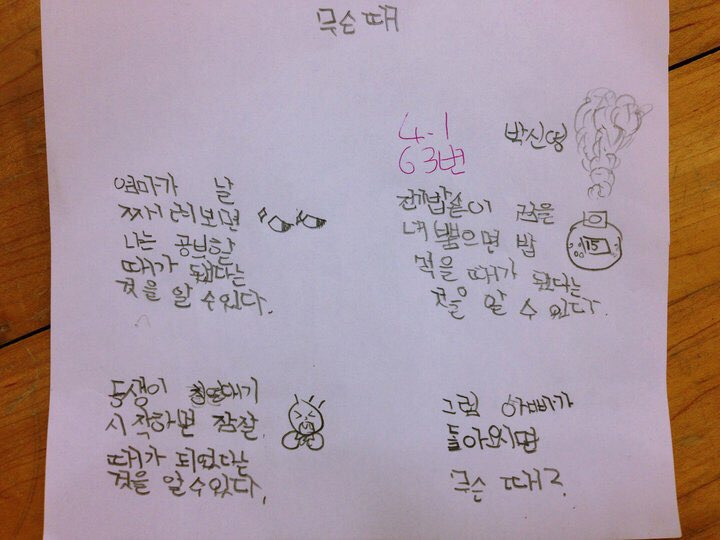 무슨때
4-1
63번
박신영
엄마가 날
째려보면
나는 공부할
때가 됐다는
것을 알 수 있다.
전기밥솥이 김을
내뿜으면 밥
먹을 때가 됬다는
것을 알 수 있다.
15
동생이 칭얼대기
시작하면 잠잘
때가 되었다는
것을 알 수 있다.
그럼 아빠가
돌아오시면
무슨 때?